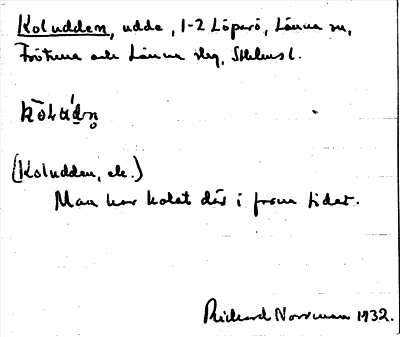 Koludden, udde, 1-2 Löparö, Länna sn,
Frötuna och Länna slg, Sthlms l.
kōlúdn̥
(Koludden, ek.)
Man har kolat där i forna tider.
Richard Norrman 1932.